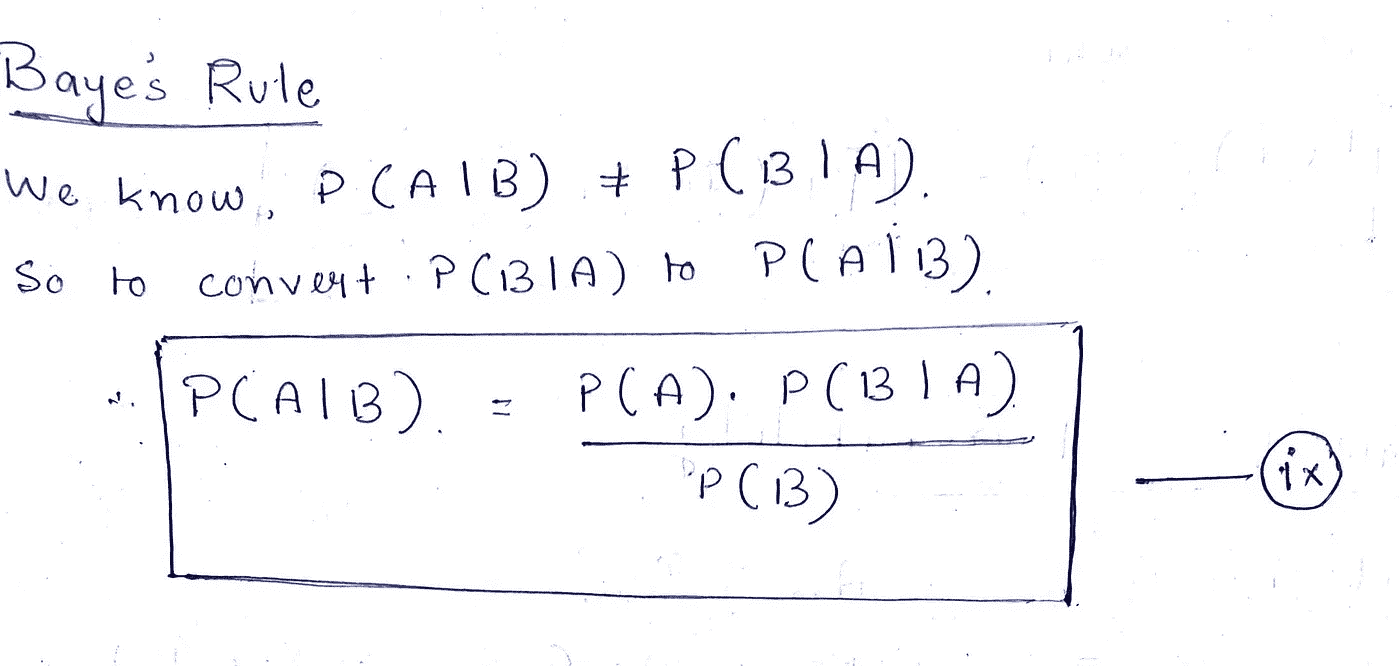 Baye's Rule
We know, P(A|B) ≠ P(B|A).
So to convert P(B|A) to P(A|B).
∴ P(A|B) = P(A). P(B|A) / P(B) — ix